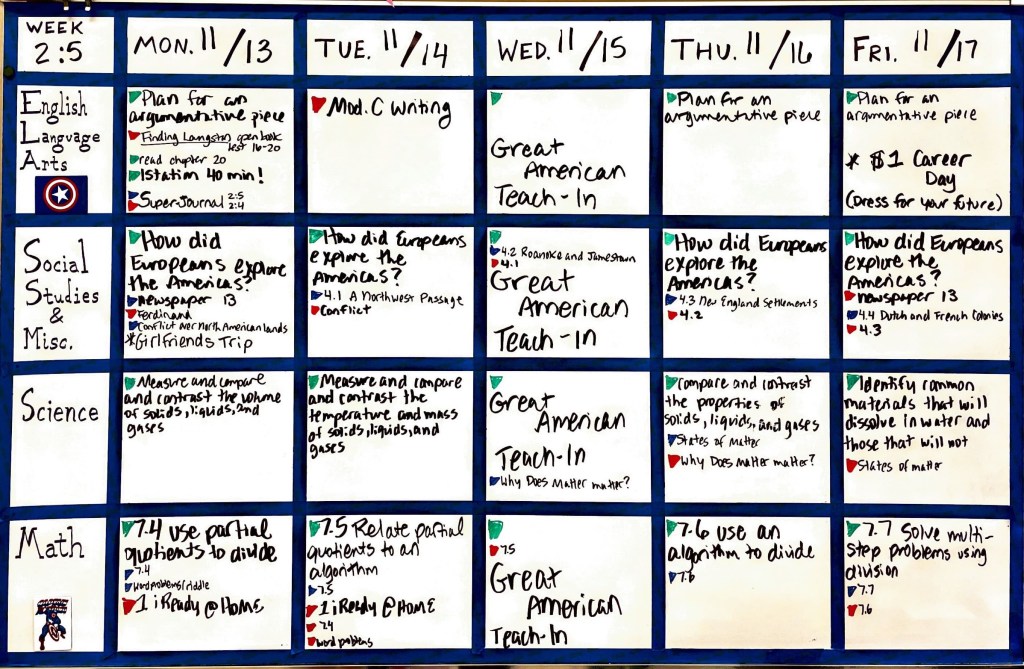 WEEK
2:5
MON. 11/13
TUE. 11/14
WED. 11/15
THU. 11/16
FRI. 11/17
English
Language
Arts
Plan for an
argumentative piece
Finding Langston open book
test 16-20
read chapter 20
IStation 40 min!
Super-Journal 2:5
2:4
Mod. C Writing
Great
American
Teach-In
Plan for an
argumentative piece
Plan for an
argumentative piece
* $1 Career
Day
(Dress for your future)
Social
Studies
&
Misc.
How did
Europeans explore
the Americas?
newspaper 13
Ferdinand
Conflict over North American lands
*Girlfriends Trip
How did Europeans
explore the
Americas?
4.1 A Northwest Passage
Conflict
4.2 Roanoke and Jamestown
4.1
Great
American
Teach-In
How did Europeans
explore the
Americas?
4.3 New England Settlements
4.2
How did Europeans
explore the
Americas?
newspaper 13
4.4 Dutch and French Colonies
4.3
Science
Measure and compare
and contrast the volume
of solids, liquids, and
gases
Measure and compare
and contrast the
temperature and mass
of solids, liquids, and
gases
Great
American
Teach-In
Why Does Matter matter?
Compare and contrast
the properties of
solids, liquids, and gases
States of Matter
Why Does Matter matter?
Identify common
materials that will
dissolve in water and
those that will not
States of matter
Math
7.4 use partial
quotients to divide
7.4
word problems/riddle
1 iReady @ HOME
7.5 Relate partial
quotients to an
algorithm
7.5
1 iReady @ HOME
7.4
word problems
7.5
Great
American
Teach-In
7.6 use an
algorithm to divide
7.6
7.7 Solve multi-
step problems using
division
7.7
7.6